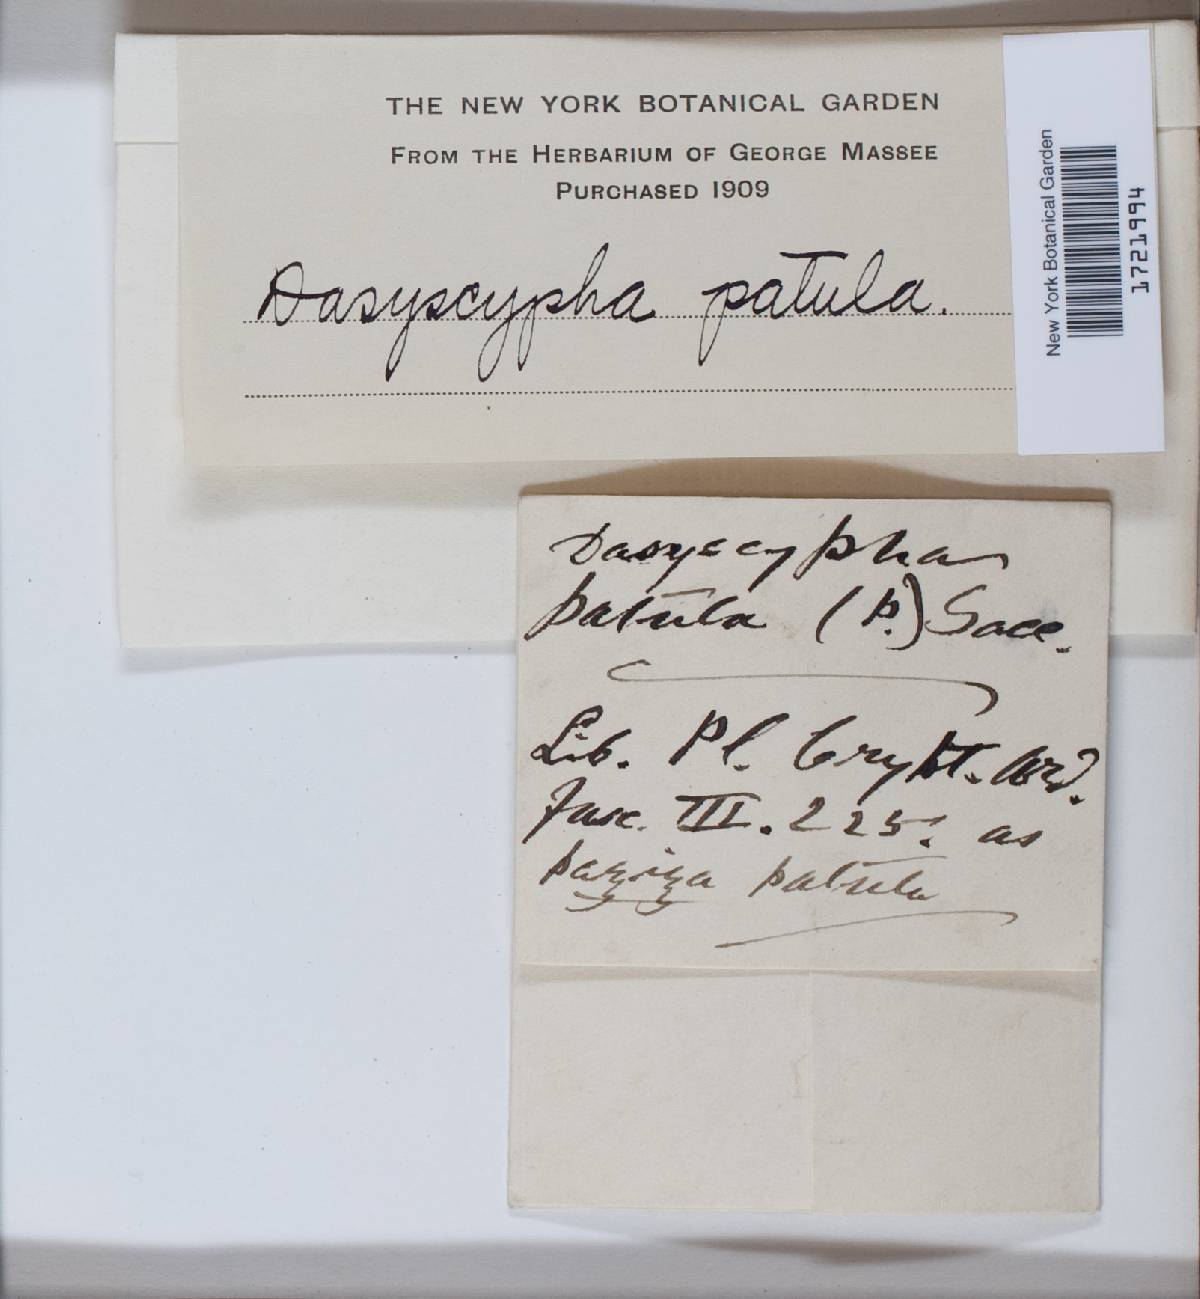 THE NEW YORK BOTANICAL GARDEN
FROM THE HERBARIUM OF GEORGE MASSEE
PURCHASED 1909
Dasyscypha patula.
New York Botanical Garden
1721994
Dasyscypha
patula (P.) Sacc.
Lib. Pl. Crypt. Ard.
Fasc. III. 225. as
Peziza patula